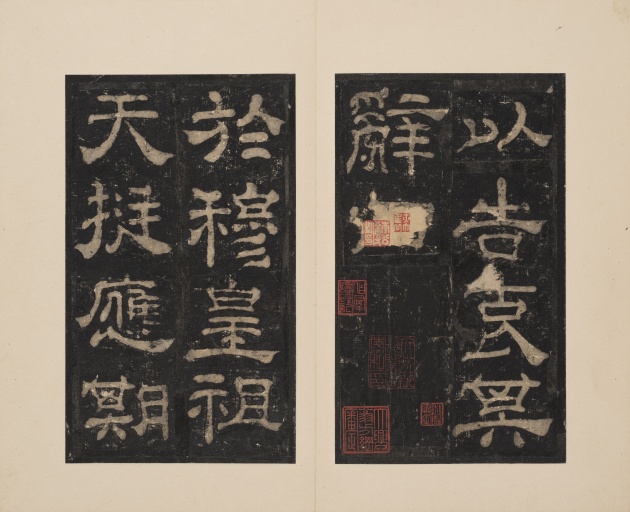 以告哀其
辭
於穆皇祖
天挺應期